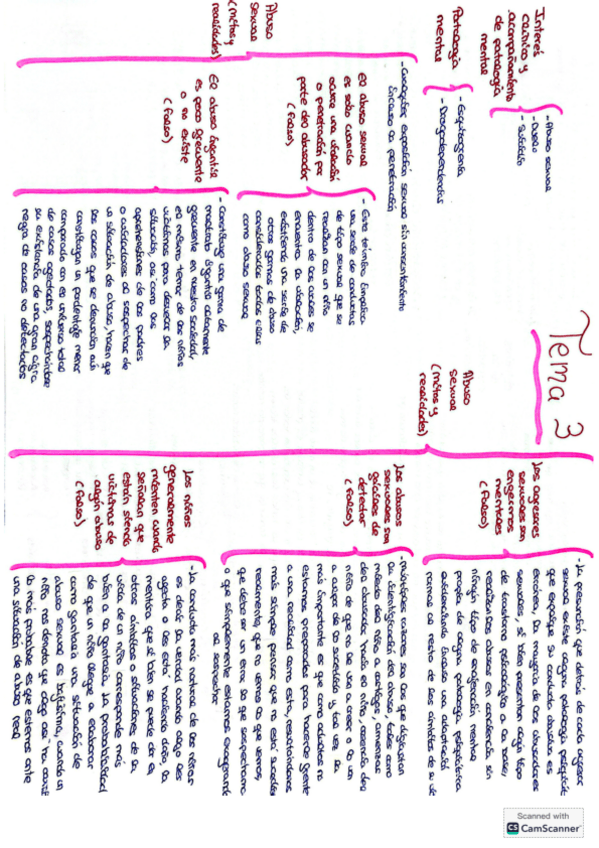 Tema 3
Interés
clínico y
acompañamiento
de patología
mental
- Abuso sexual
- Duelo
- Suicidio
Patología
mental
- Esquizofrenia
- Drogodependencias
Abuso
sexual
(mitos y
realidades)
- Concepto: exposición sexual sin consentimiento
incluso la penetración
El abuso sexual
es solo cuando
ocurre una violación
o penetración por
parte del abusador
(Falso)
- Este término implica
una serie de conductas
de tipo sexual que se
realizan con un niño
dentro de las cuales se
encuentra la violación,
existiendo una serie de
otras formas de abuso
consideradas todas ellas
como abuso sexual
El abuso infantil
es poco frecuente
o no existe
(Falso)
- Constituye una forma de
maltrato infantil altamente
frecuente en nuestra sociedad,
el mismo temor de los niños
víctimas para develar su
situación, así como las
aprehensiones de los padres
o cuidadores al sospechar de
la situación de abuso, hacen que
los casos que se denuncian aún
constituyan un porcentaje menor
comparado con el universo total
de casos afectados, sospechándose
la existencia de una gran cifra
negra de casos no detectados
Abuso
sexual
(mitos y
realidades)
Los agresores
sexuales son
enfermos
mentales
(Falso)
- La presunción que detrás de cada agresor
sexual existe alguna patología psiquiátrica
que explique su conducta abusiva es
errónea, la mayoría de los abusadores
sexuales, si bien presentan algún tipo
de trastorno psicológico a la base,
realizan sus abusos en conciencia, sin
ningún tipo de enajenación mental
propia de alguna patología psiquiátrica
evidenciando incluso una adaptación
normal al resto de los ámbitos de su vida
Los abusos
sexuales son
fáciles de
detectar
(Falso)
- Múltiples razones son las que dificultan
la identificación del abuso, tales como
miedo del niño a contarlo, amenazas
del abusador hacia el niño, miedo del
niño de que no se le va a creer o lo van
a culpar de lo sucedido y tal vez la
más importante es que como adultos no
estamos preparados para hacerle frente
a una realidad como esta, resultándonos
más simple pensar que no está sucediendo
realmente, que no vemos lo que vemos,
que debe ser un error lo que sospechamos
o que simplemente estamos exagerando
al sospechar
Los niños
generalmente
mienten cuando
señalan que
están siendo
víctimas de
algún abuso
(Falso)
- La conducta más natural de los niños
es decir la verdad cuando algo les
afecta o les está haciendo daño, la
mentira que si bien se puede dar en
otros ámbitos o situaciones de la
vida de un niño corresponde más
bien a la fantasía. La probabilidad
de que un niño llegue a elaborar
como fantasía una situación de
abuso sexual es bajísima, cuando un
niño nos devela que algo así ha ocurrido
lo más probable es que estemos ante
una situación de abuso real
Scanned with
CS CamScanner